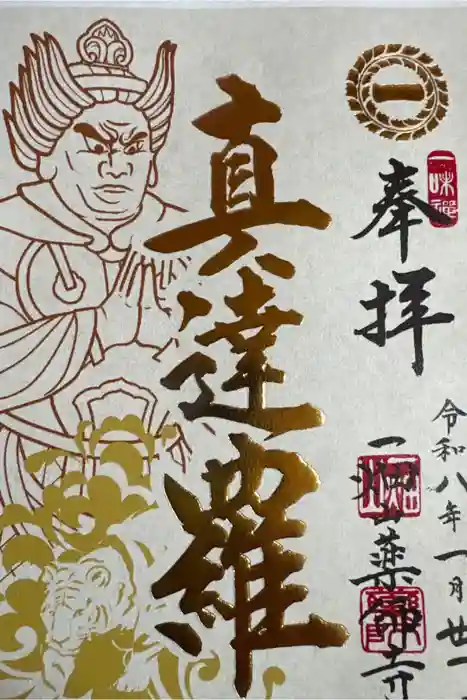 一
一味禅
奉拝
令和八年一月廿一
一畑山薬師寺
真達羅